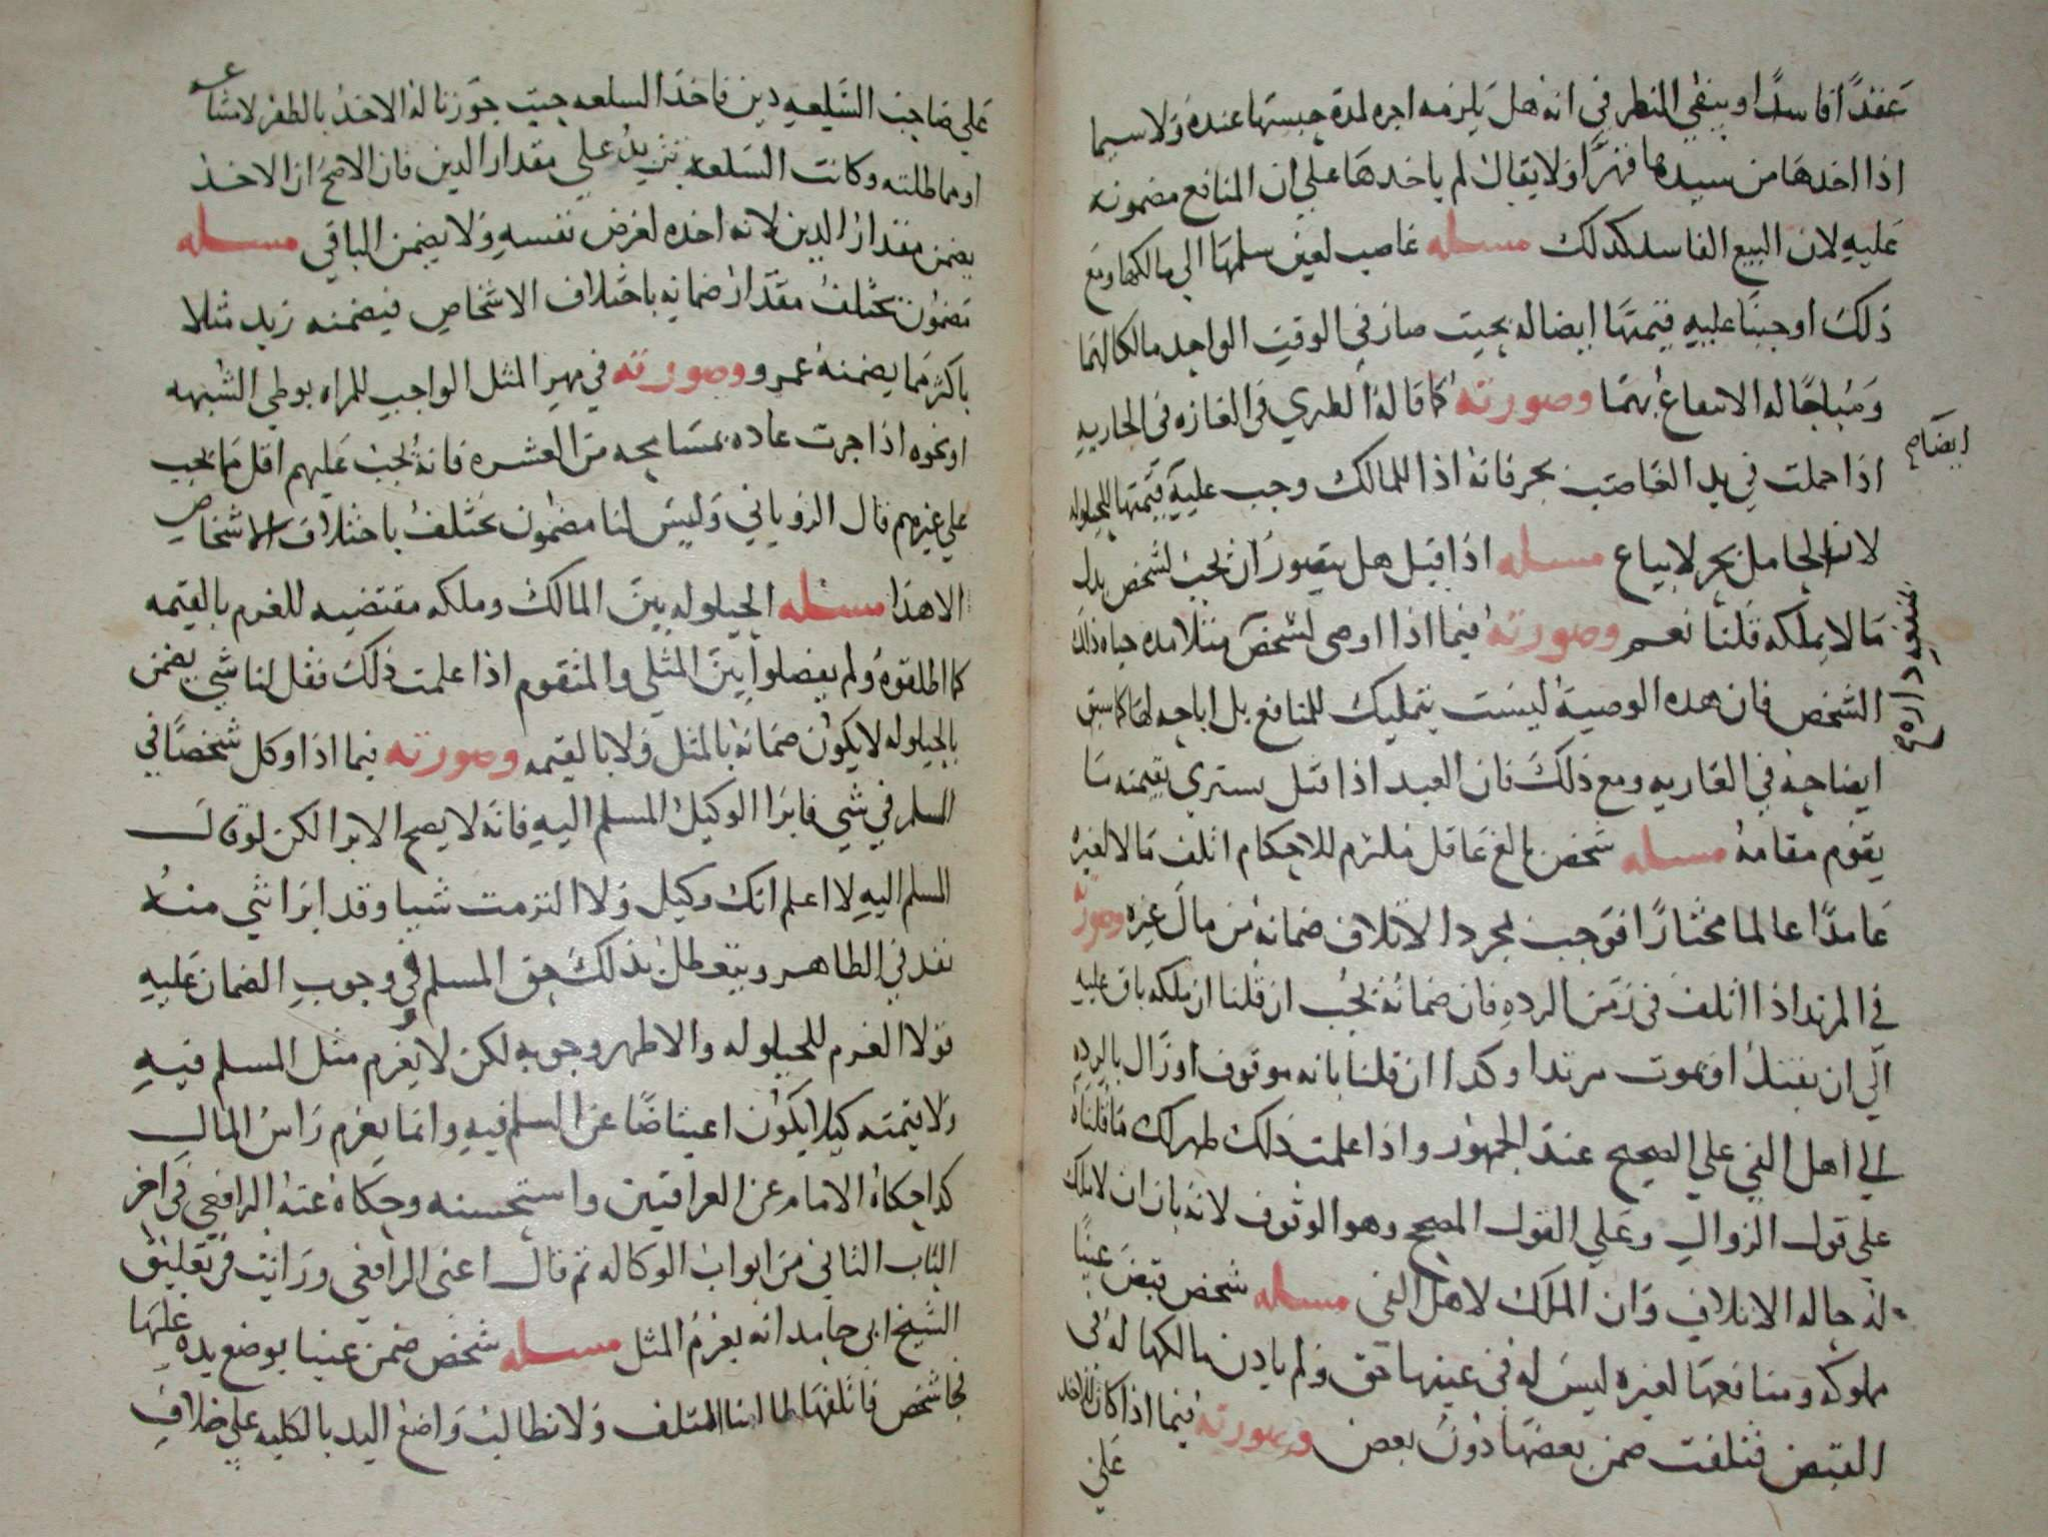 عقدًا فاسدًا وينبغي النظر في انه هل يلزمه اجره لمدة حبستها عنده ولا سيما
اذا اخدها من سيدها قهرًا ولا يقال لم ياخدها علي ان المنافع مضمونه
عليه لان البيع الفاسد كدلك مسله غاصب لعين سلمها الي مالكها ومع
ذلك اوجبنا عليه قيمتها ايضا له بحيت صار في الوقت الواحد مالكا لهما
ومباحًا له الانتفاع بهما وصورته كما قاله الطبري في الجاريه
اذا حملت في يد الغاصب بحر فانه اذا للمالك وجب عليه قيمتها للحيلوله
ايضاح
لان الحامل بحر لا يباع مسله اذا قيل هل يتصور ان يجب لشخص بدل
ما لا يملكه قلنا نعم وصورته فيما اذا اوصى لشخص مثلا مده حياه ذلك
الشخص فان هده الوصية ليست بتمليك للمنافع بل اباحه لها كما سبق
ايضاحه في العاريه ومع ذلك فان العبد اذا قتل يستري بقيمته ما
يقوم مقامه مسله شخص بالغ عاقل ملتزم للاحكام اتلف مالا لغيره
عامدًا عالما مختارًا فوجب بمجرد الاتلاف ضمانه من مال غيره وصورته
في المرتد اذا اتلف في زمن الرده فان ضمانه يجب ان قلنا ان ملكه باق عليه
الي ان يقتل او يموت مرتدا وكدا ان قلنا بانه موقوف او زال بالرده
الي اهل الفي علي الصحيح عند الجمهور واذا علمت ذلك ظهر لك ما قلناه
علي قول الزوال وعلي القول الصحيح وهو الوقوف لانه بان ان لا ملك
له حاله الاتلاف وان الملك لاهل الفي مسله شخص قبض عينًا
مملوكه ومنافعها لغيره ليس له في عينها حق ولم يادن مالكها له في
القبض فتلفت ضمن بعضها دون بعض وصورته فيما اذا كان للاخد
علي
علي صاحب السلعه دين فاخد السلعه حيت جوزنا له الاخذ بالظفر لامتناعه
او مماطلته وكانت السلعه تزيد علي مقدار الدين فان الاصح ان الاخذ
يضمن مقدار الدين لانه اخده لغرض نفسه ولا يضمن الباقي مسله
مضمون يختلف مقدار ضمانه باختلاف الاشخاص فيضمنه زيد مثلا
باكثر مما يضمنه عمرو وصورته في مهر المثل الواجب للمراه بوطي الشبهه
او نحوه اذا جرت عاده بمسامحه من العشره فانه يجب عليهم اقل مما يجب
علي غيرهم قال الروياني وليس لنا مضمون يختلف باختلاف الاشخاص
الا هذا مسله الحيلوله بين المالك وملكه مقتضيه للغرم بالقيمه
كما اطلقوه ولم يفصلوا بين المثلي والمتقوم اذا علمت ذلك فقل لنا شي يضمن
بالحيلوله لا يكون ضمانه بالمثل ولا بالقيمه وصورته فيما اذا وكل شخصًا في
السلم في شي فابرا الوكيل المسلم اليه فانه لا يصح الابرا لكن لو قال
المسلم اليه لا اعلم انك وكيل ولا التزمت شيا وقد ابراتني منه
نفد في الظاهر ويتعطل بذلك حق المسلم في وجوب الضمان عليه
قولا الغرم للحيلوله والاظهر وجوبه لكن لا يغرم مثل المسلم فيه
ولا قيمته كيلا يكون اعتياضًا عن السلم فيه وانما يغرم راس المال
كدا حكاه الامام عن العراقيين واستحسنه وحكاه عنه الرافعي في اخر
الباب الثاني من ابواب الوكاله ثم قال اعني الرافعي ورايت في تعليق
الشيخ ابي حامد انه يغرم المثل مسله شخص ضمن عينا بوضع يده عليها
فجا شخص فاتلفها طالبنا المتلف ولا نطالب واضع اليد بالكليه علي خلاف